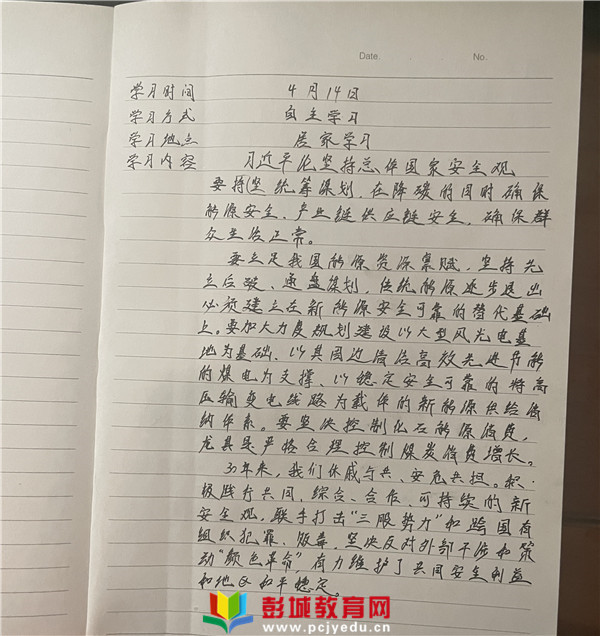 Date.
No.
学习时间 4月14日
学习方式 自主学习
学习地点 居家学习
学习内容 习近平论坚持总体国家安全观
要持坚统筹谋划,在降碳的同时确保
能源安全、产业链供应链安全,确保群
众生活正常。
要立足我国能源资源禀赋,坚持先
立后破、通盘谋划,传统能源逐步退出
必须建立在新能源安全可靠的替代基础
上。要加大力度规划建设以大型风光电基
地为基础、以其周边清洁高效先进节能
的煤电为支撑、以稳定安全可靠的特高
压输变电线路为载体的新能源供给消
纳体系。要坚决控制化石能源消费,
尤其是严格合理控制煤炭消费增长。
30年来,我们休戚与共、安危共担。积
极践行共同、综合、合作、可持续的新
安全观,联手打击“三股势力”和跨国有
组织犯罪、贩毒,坚决反对外部干涉和策
动“颜色革命”,有力维护了共同安全利益
和地区和平稳定。
彭城教育网
www.pcjyedu.cn